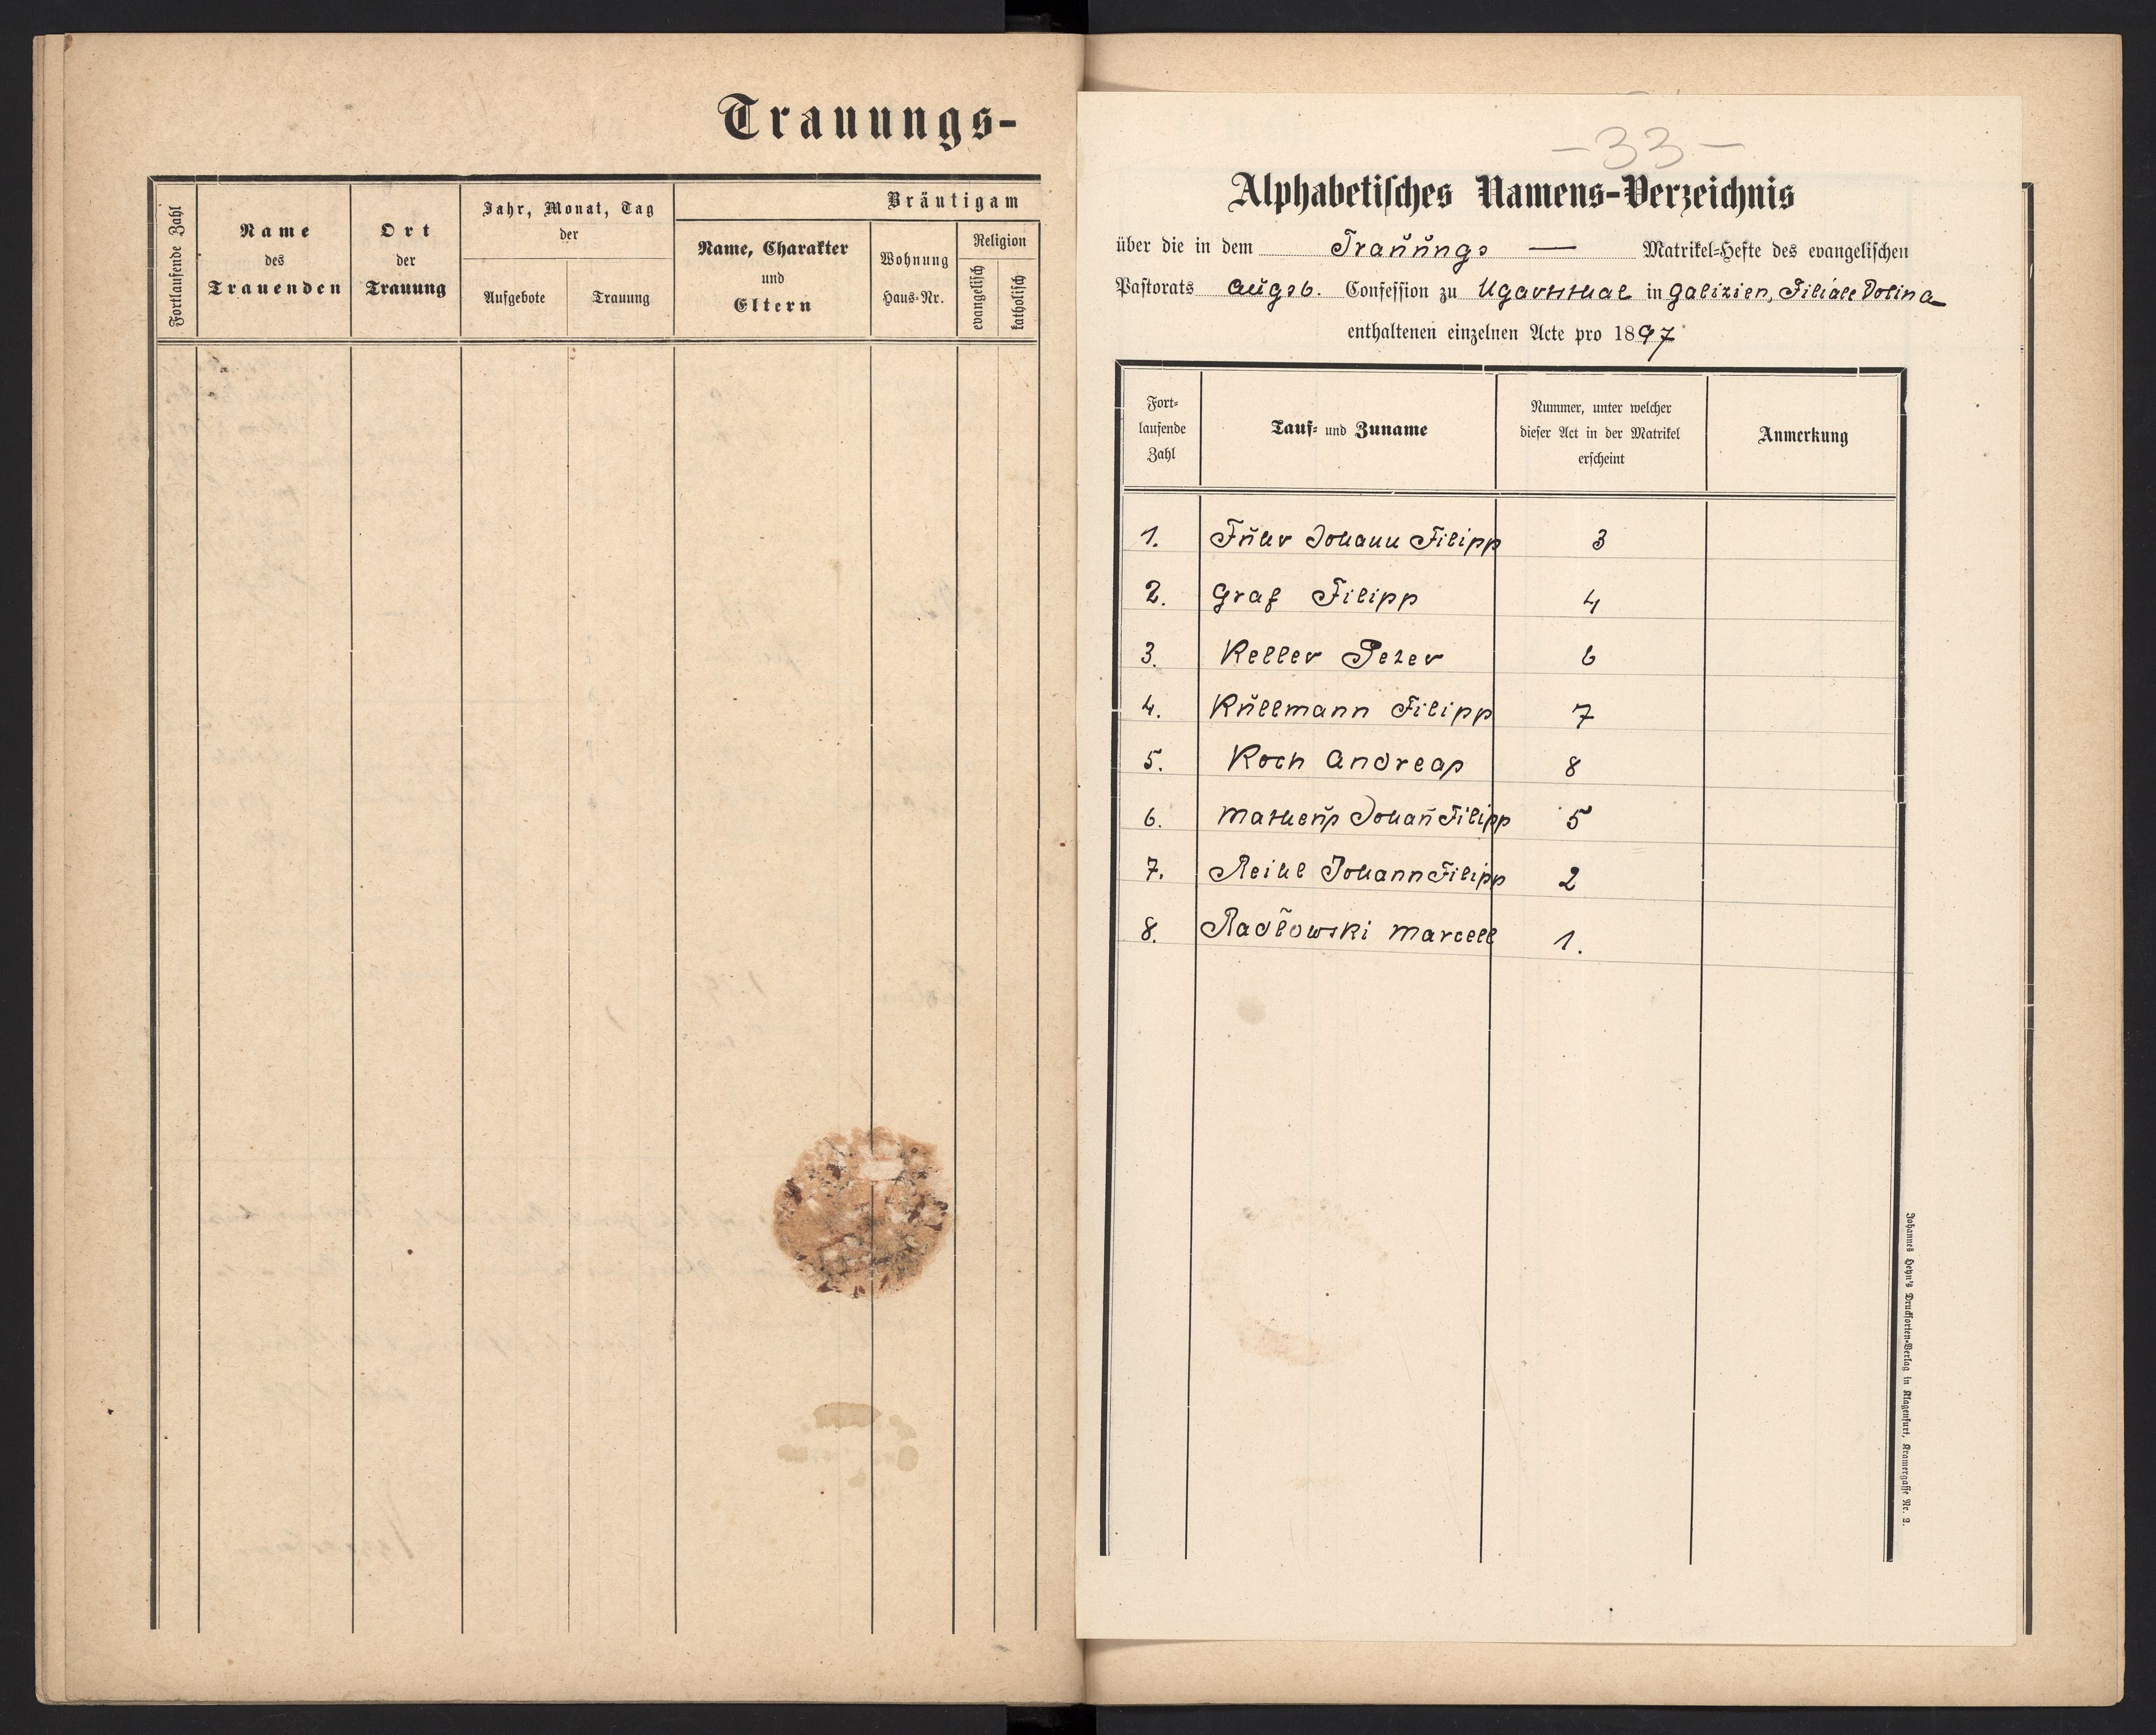 Trauungs-
Fortlaufende Zahl
Name
des
Trauenden
Ort
der
Trauung
Jahr, Monat, Tag
der
Aufgebote
Trauung
Bräutigam
Name, Charakter
und
Eltern
Wohnung
Haus-Nr.
Religion
evangelisch
katholisch
-33-
Alphabetisches Namens-Verzeichnis
über die in dem Trauungs — Matrikel-Hefte des evangelischen
Pastorats Augsb. Confession zu Ugartsthal in Galizien, Filiale Dolina
enthaltenen einzelnen Acte pro 1897
Fort-
laufende
Zahl
Tauf- und Zuname
Nummer, unter welcher
dieser Act in der Matrikel
erscheint
Anmerkung
1. Fuhr Johann Filipp 3
2. Graf Filipp 4
3. Keller Peter 6
4. Kullmann Filipp 7
5. Koch Andreas 8
6. Matheus Johañ Filipp 5
7. Reihl Johann Filipp 2
8. Radłowski Marcell 1.
Johannes Heyn's Drucksorten-Verlag in Klagenfurt, Kramergasse Nr. 2.